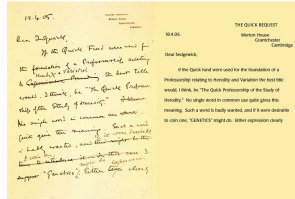 18.4.05.
Dear Sedgwick,
If the Quick Fund were used for
the foundation of a Professorship relating
to Heredity & Variation the best title
would, I think, be "The Quick Professor
ship of the Study of Heredity".
No single word in common use
quite gives this meaning. Such a word
is badly wanted, and
"Genetics" might do. Either
THE QUICK BEQUEST
18.4.05.
Merton House
Grantchester
Cambridge
Dear Sedgewick,
If the Quick Fund were used for the foundation of a
Professorship relating to Heredity and Variation the best title
would, I think, be "The Quick Professorship of the Study of
Heredity." No single word in common use quite gives this
meaning. Such a word is badly wanted, and if it were desirable
to coin one, "GENETICS" might do. Either expression clearly